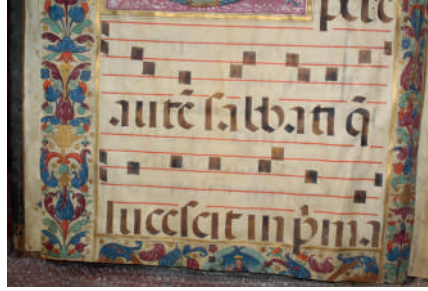 pere
autē sabbati q̄
lucescit in p̄ma